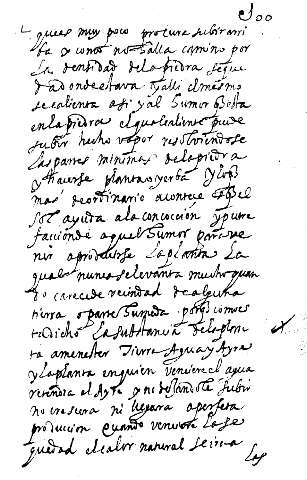 500
que es muy poco procura subir arri
ba y como no halla camino por
la densidad de la piedra se que
da donde estava y alli el mesmo
se calienta asi y al humor questa
en la piedra el qual caliente puede
subir hecho vapor resolviendose
las partes minimas de la piedra
y hacerse planta o yerba y lo
mas de ordinario acontece quel
sol ayuda a la concoction y putre
faction de aquel humor para ve
nir a producirse la planta la
qual nunca se levanta mucho quan
do carece de vecindad de alguna
tierra o parte humida porq como es
ta dicho la substancia de la plan
ta a menester Tierra Agua y Ayre
y la planta en quien venciere el agua
retendra el Ayre y no dejandole subir
no crecera ni llegara a perfeta
produccion quando venciere la se
quedad el calor natural se ira
las